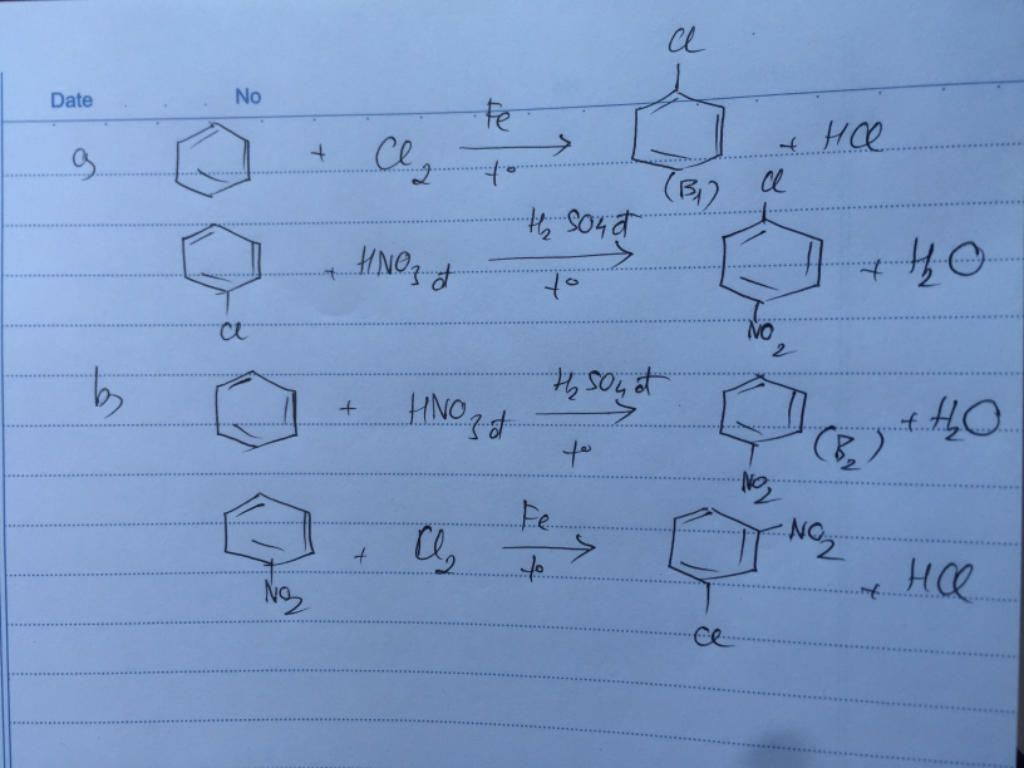 Date No
a, + Cl2 Fe t° → Cl (B1) + HCl
Cl + HNO3 đ H2SO4 đ t° → Cl NO2 + H2O
b, + HNO3 đ H2SO4 đ t° → NO2 (B2) + H2O
NO2 + Cl2 Fe t° → NO2 Cl + HCl